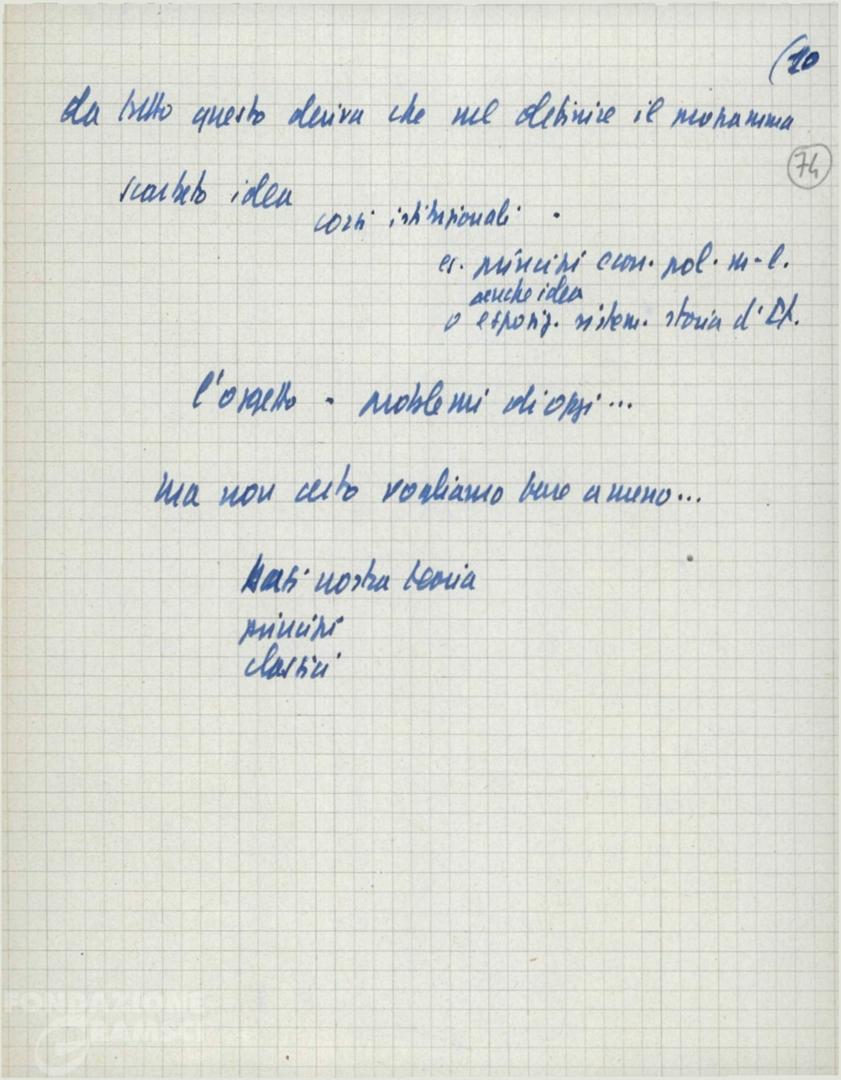 (10
da tutto questo deriva che nel definire il programma
74
scartato idea
corsi istituzionali -
es. principi econ. pol. m-l.
anche idea
o esposiz. sistem. storia d'It.
l'oggetto - problemi di oggi...
ma non certo vogliamo fare a meno...
nostra teoria
principi
classici
FONDAZIONE
GRAMSCI